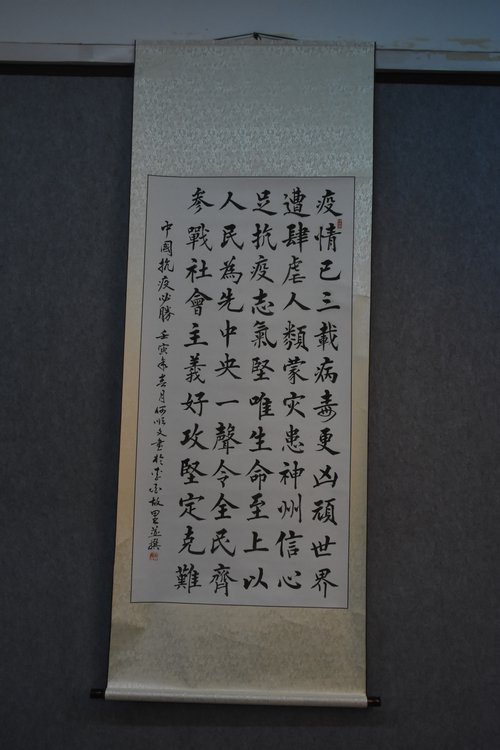 疫情已三載病毒更凶頑世界
遭肆虐人類蒙灾患神州信心
足抗疫志氣堅唯生命至上以
人民為先中央一聲令全民齊
参戰社會主義好攻堅定克難
中國抗疫必勝 壬寅年春月何順文書於故里並撰